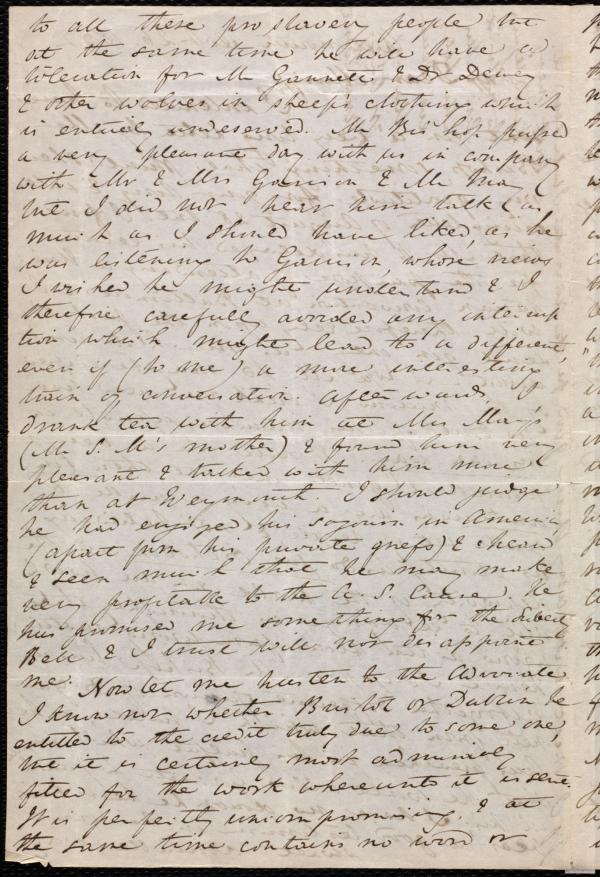 to all these proslavery people but
at the same time he will have a
toleration for Mr Gannett & Dr Dewey
& other wolves in sheep's clothing which
is entirely undeserved. Mr Bishop passed
a very pleasant day with us in company
with Mr & Mrs Garrison & Mr May
but I did not hear him talk (as
much as I should have liked, as he
was listening to Garrison, whose views
I wished he might understand & I
therefore carefully avoided any interrup
tion which might lead to a different,
even if (to me) a more interesting
train of conversation. Afterwards, I
drank tea with him at Mrs May's
(Mr S. M's mother) & found him very
pleasant & talked with him more
than at Weymouth. I should judge
he had enjoyed his sojourn in America
(apart from his private griefs) & heard
& seen much that he may make
very profitable to the A. S. Cause. He
has promised me something for the Liberty
Bell & I trust will not disappoint
me. Now let me hasten to the Advocate
I know not whether Bristol or Dublin be
entitled to the credit truly due to some one,
but it is certainly most admirably
fitted for the work whereunto it is sent.
It is perfectly uncompromising, & at
the same time contains no word or